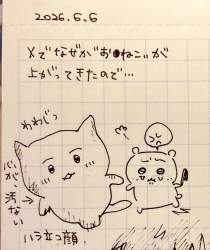 2026.6.6
Xでなぜか"お●ねこ"が
上がってきたので…
わわじっ
心が汚ない
ハラ立つ顔